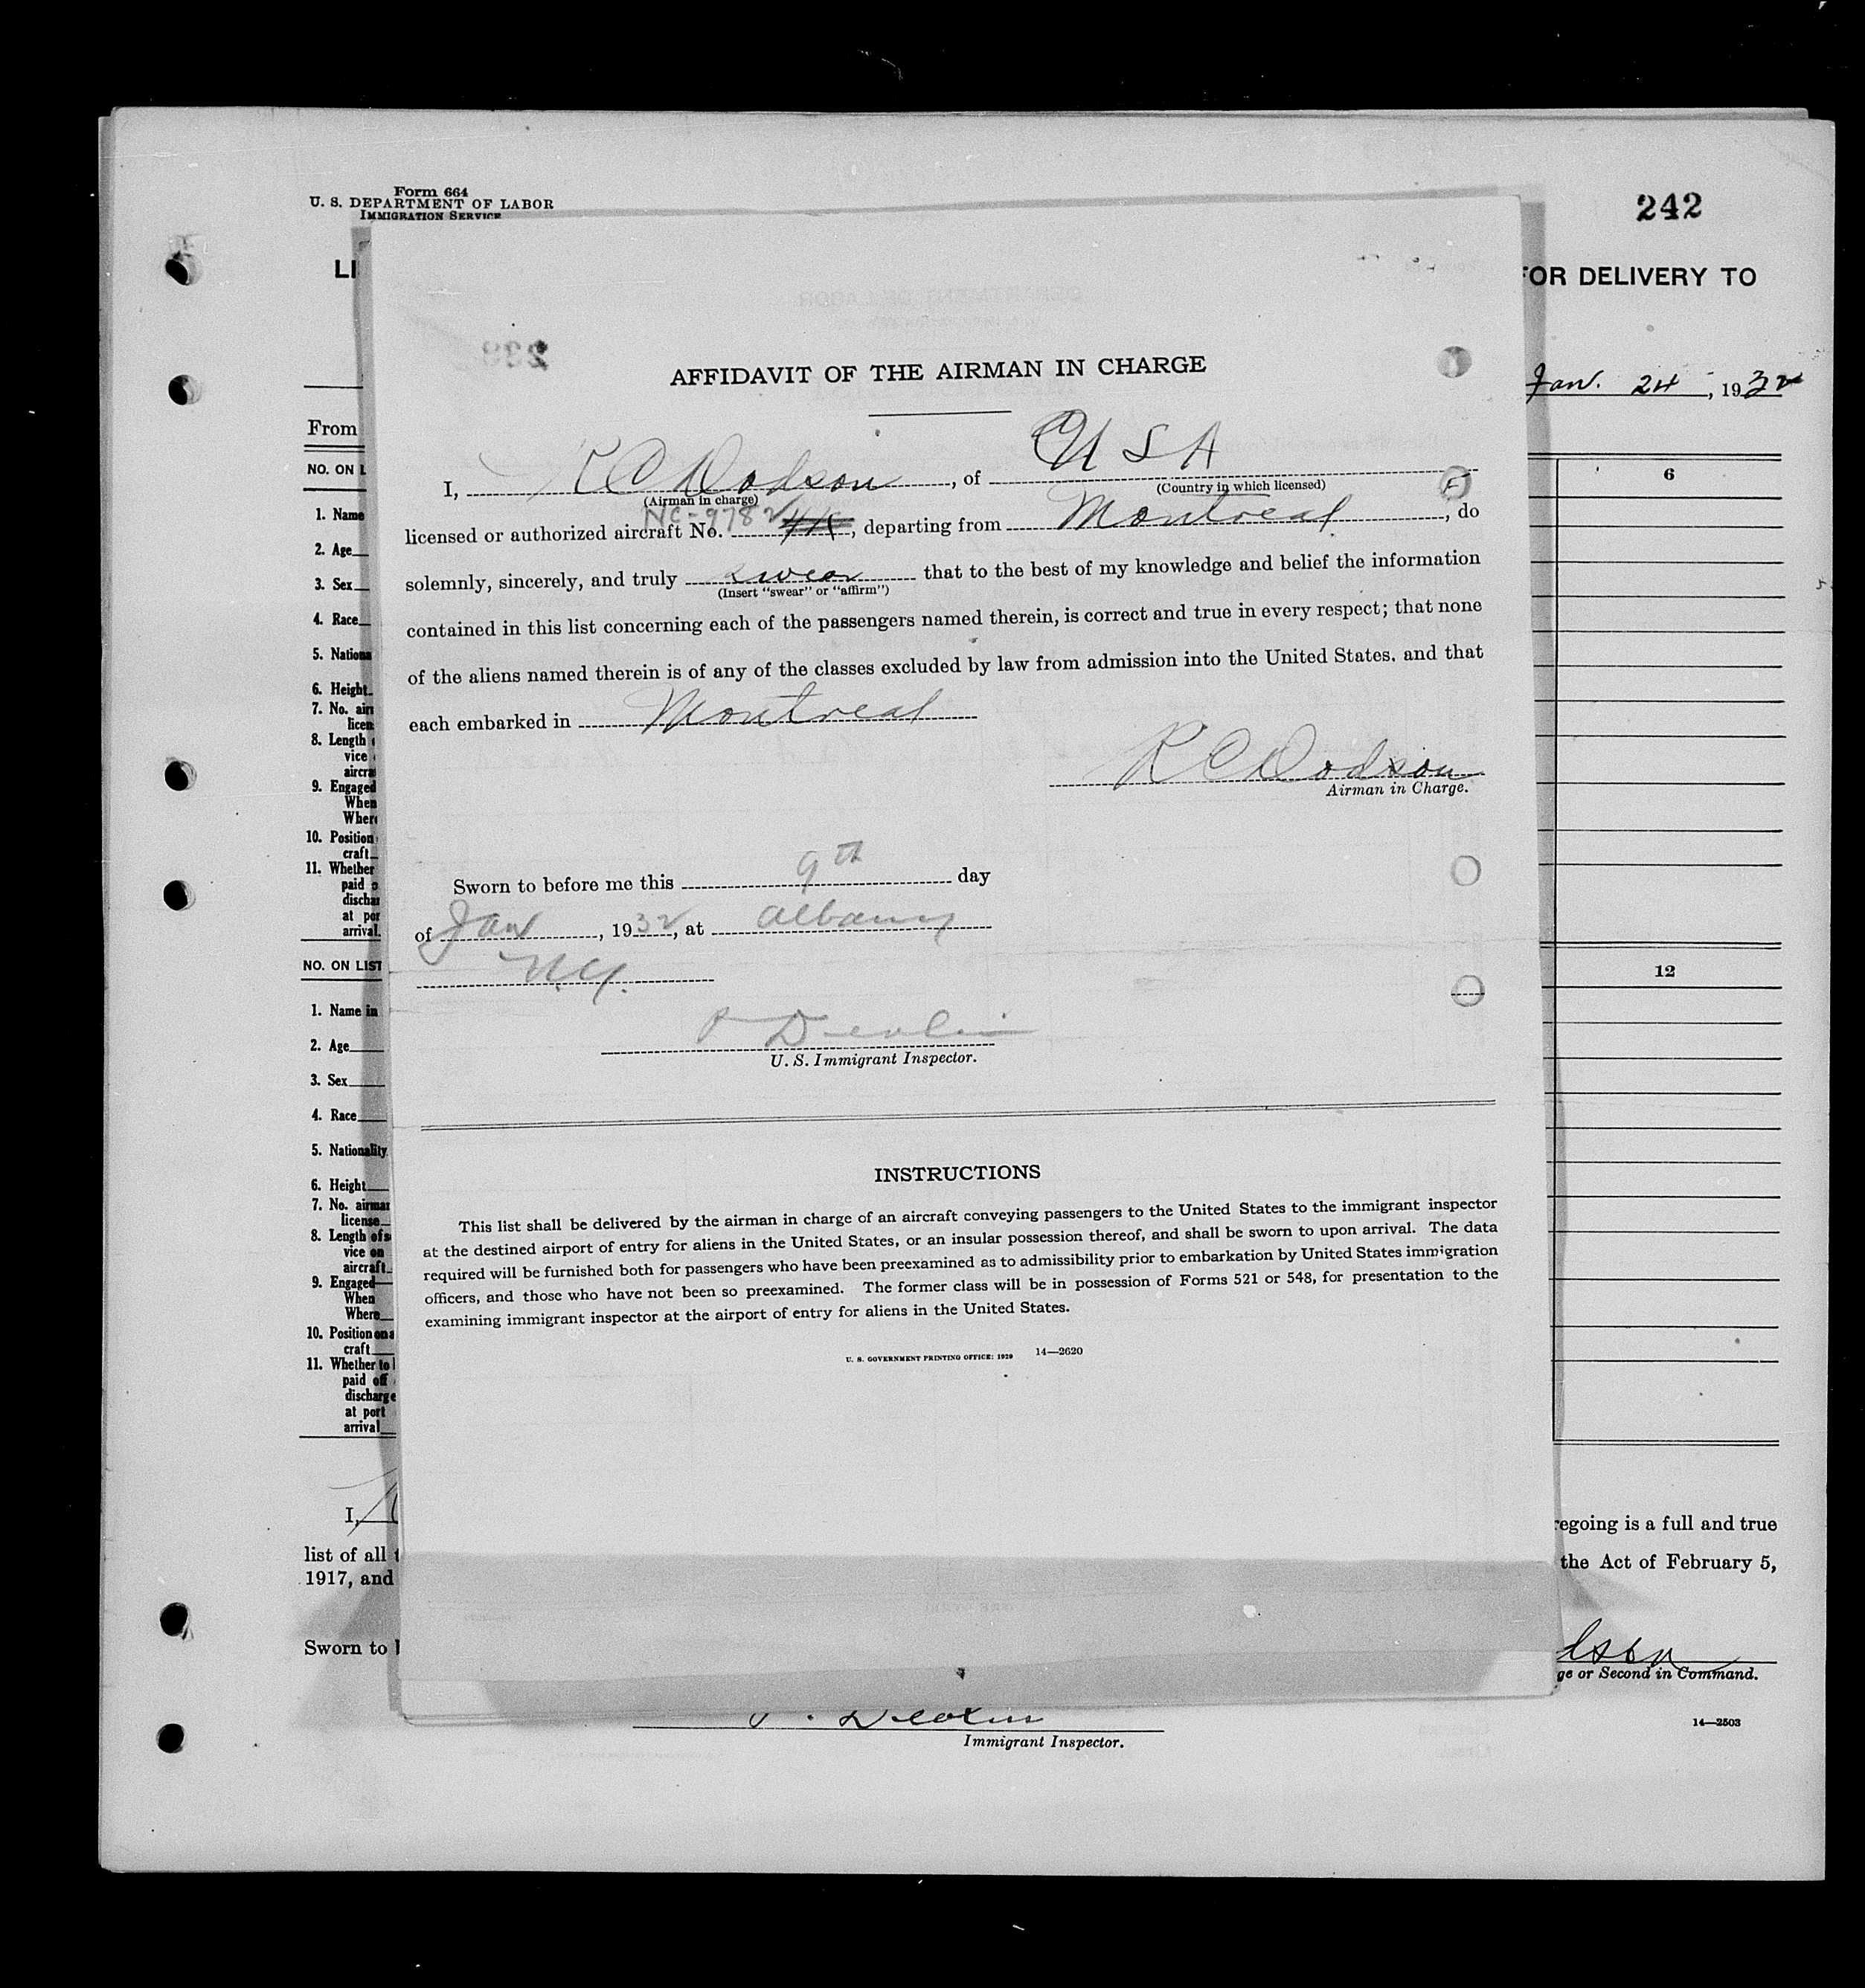 Form 664
U. S. DEPARTMENT OF LABOR
IMMIGRATION SERVICE
242
LI
FOR DELIVERY TO
Jan. 24, 1932
From
NO. ON L
6
1. Name
2. Age
3. Sex
4. Race
5. Nationa
6. Height
7. No. air
licen
8. Length
vice
aircra
9. Engaged
When
Where
10. Position
craft
11. Whether
paid o
dischar
at por
arrival
NO. ON LIST
12
1. Name in
2. Age
3. Sex
4. Race
5. Nationality
6. Height
7. No. airman
license
8. Length of s
vice on
aircraft
9. Engaged
When
Where
10. Position on a
craft
11. Whether to
paid off
discharge
at port
arrival
I,
regoing is a full and true
list of all t
the Act of February 5,
1917, and
Sworn to
ge or Second in Command.
14—2503
P. Devlin
Immigrant Inspector.
AFFIDAVIT OF THE AIRMAN IN CHARGE
I, R C Dodson, of U S A
(Airman in charge) (Country in which licensed)
licensed or authorized aircraft No. NC-978, departing from Montreal, do
solemnly, sincerely, and truly swear that to the best of my knowledge and belief the information
(Insert "swear" or "affirm")
contained in this list concerning each of the passengers named therein, is correct and true in every respect; that none
of the aliens named therein is of any of the classes excluded by law from admission into the United States, and that
each embarked in Montreal
R C Dodson
Airman in Charge.
Sworn to before me this 9th day
of Jan, 1932, at Albany
N.Y.
P Devlin
U. S. Immigrant Inspector.
INSTRUCTIONS
This list shall be delivered by the airman in charge of an aircraft conveying passengers to the United States to the immigrant inspector
at the destined airport of entry for aliens in the United States, or an insular possession thereof, and shall be sworn to upon arrival. The data
required will be furnished both for passengers who have been preexamined as to admissibility prior to embarkation by United States immigration
officers, and those who have not been so preexamined. The former class will be in possession of Forms 521 or 548, for presentation to the
examining immigrant inspector at the airport of entry for aliens in the United States.
U. S. GOVERNMENT PRINTING OFFICE: 1929 14—2620